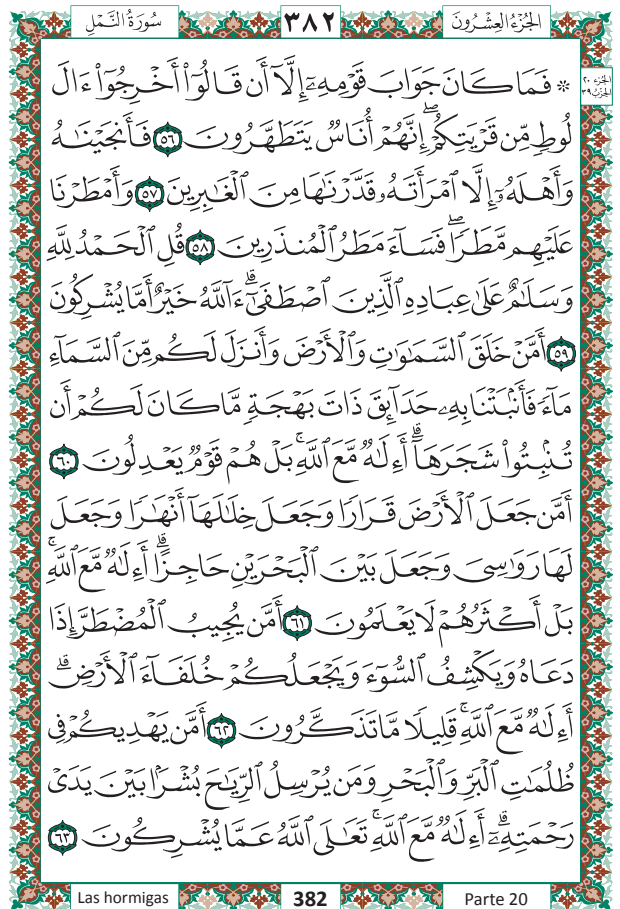 سُورَةُ النَّمْلِ ٣٨٢ الجُزْءُ العِشْرُونَ
الجزء ٢٠
الحزب ٣٩
۞ فَمَا كَانَ جَوَابَ قَوْمِهِۦٓ إِلَّآ أَن قَالُوٓا۟ أَخْرِجُوٓا۟ ءَالَ
لُوطٍ مِّن قَرْيَتِكُمْ ۖ إِنَّهُمْ أُنَاسٌ يَتَطَهَّرُونَ ٥٦ فَأَنجَيْنَـٰهُ
وَأَهْلَهُۥٓ إِلَّا ٱمْرَأَتَهُۥ قَدَّرْنَـٰهَا مِنَ ٱلْغَـٰبِرِينَ ٥٧ وَأَمْطَرْنَا
عَلَيْهِم مَّطَرًا ۖ فَسَآءَ مَطَرُ ٱلْمُنذَرِينَ ٥٨ قُلِ ٱلْحَمْدُ لِلَّهِ
وَسَلَـٰمٌ عَلَىٰ عِبَادِهِ ٱلَّذِينَ ٱصْطَفَىٰٓ ۗ ءَآللَّهُ خَيْرٌ أَمَّا يُشْرِكُونَ
٥٩ أَمَّنْ خَلَقَ ٱلسَّمَـٰوَٰتِ وَٱلْأَرْضَ وَأَنزَلَ لَكُم مِّنَ ٱلسَّمَآءِ
مَآءً فَأَنۢبَتْنَا بِهِۦ حَدَآئِقَ ذَاتَ بَهْجَةٍ مَّا كَانَ لَكُمْ أَن
تُنۢبِتُوا۟ شَجَرَهَآ ۗ أَءِلَـٰهٌ مَّعَ ٱللَّهِ ۚ بَلْ هُمْ قَوْمٌ يَعْدِلُونَ ٦٠
أَمَّن جَعَلَ ٱلْأَرْضَ قَرَارًا وَجَعَلَ خِلَـٰلَهَآ أَنْهَـٰرًا وَجَعَلَ
لَهَا رَوَٰسِىَ وَجَعَلَ بَيْنَ ٱلْبَحْرَيْنِ حَاجِزًا ۗ أَءِلَـٰهٌ مَّعَ ٱللَّهِ ۚ
بَلْ أَكْثَرُهُمْ لَا يَعْلَمُونَ ٦١ أَمَّن يُجِيبُ ٱلْمُضْطَرَّ إِذَا
دَعَاهُ وَيَكْشِفُ ٱلسُّوٓءَ وَيَجْعَلُكُمْ خُلَفَآءَ ٱلْأَرْضِ ۗ
أَءِلَـٰهٌ مَّعَ ٱللَّهِ ۚ قَلِيلًا مَّا تَذَكَّرُونَ ٦٢ أَمَّن يَهْدِيكُمْ فِى
ظُلُمَـٰتِ ٱلْبَرِّ وَٱلْبَحْرِ وَمَن يُرْسِلُ ٱلرِّيَـٰحَ بُشْرًۢا بَيْنَ يَدَىْ
رَحْمَتِهِۦٓ ۗ أَءِلَـٰهٌ مَّعَ ٱللَّهِ ۚ تَعَـٰلَى ٱللَّهُ عَمَّا يُشْرِكُونَ ٦٣
Las hormigas 382 Parte 20